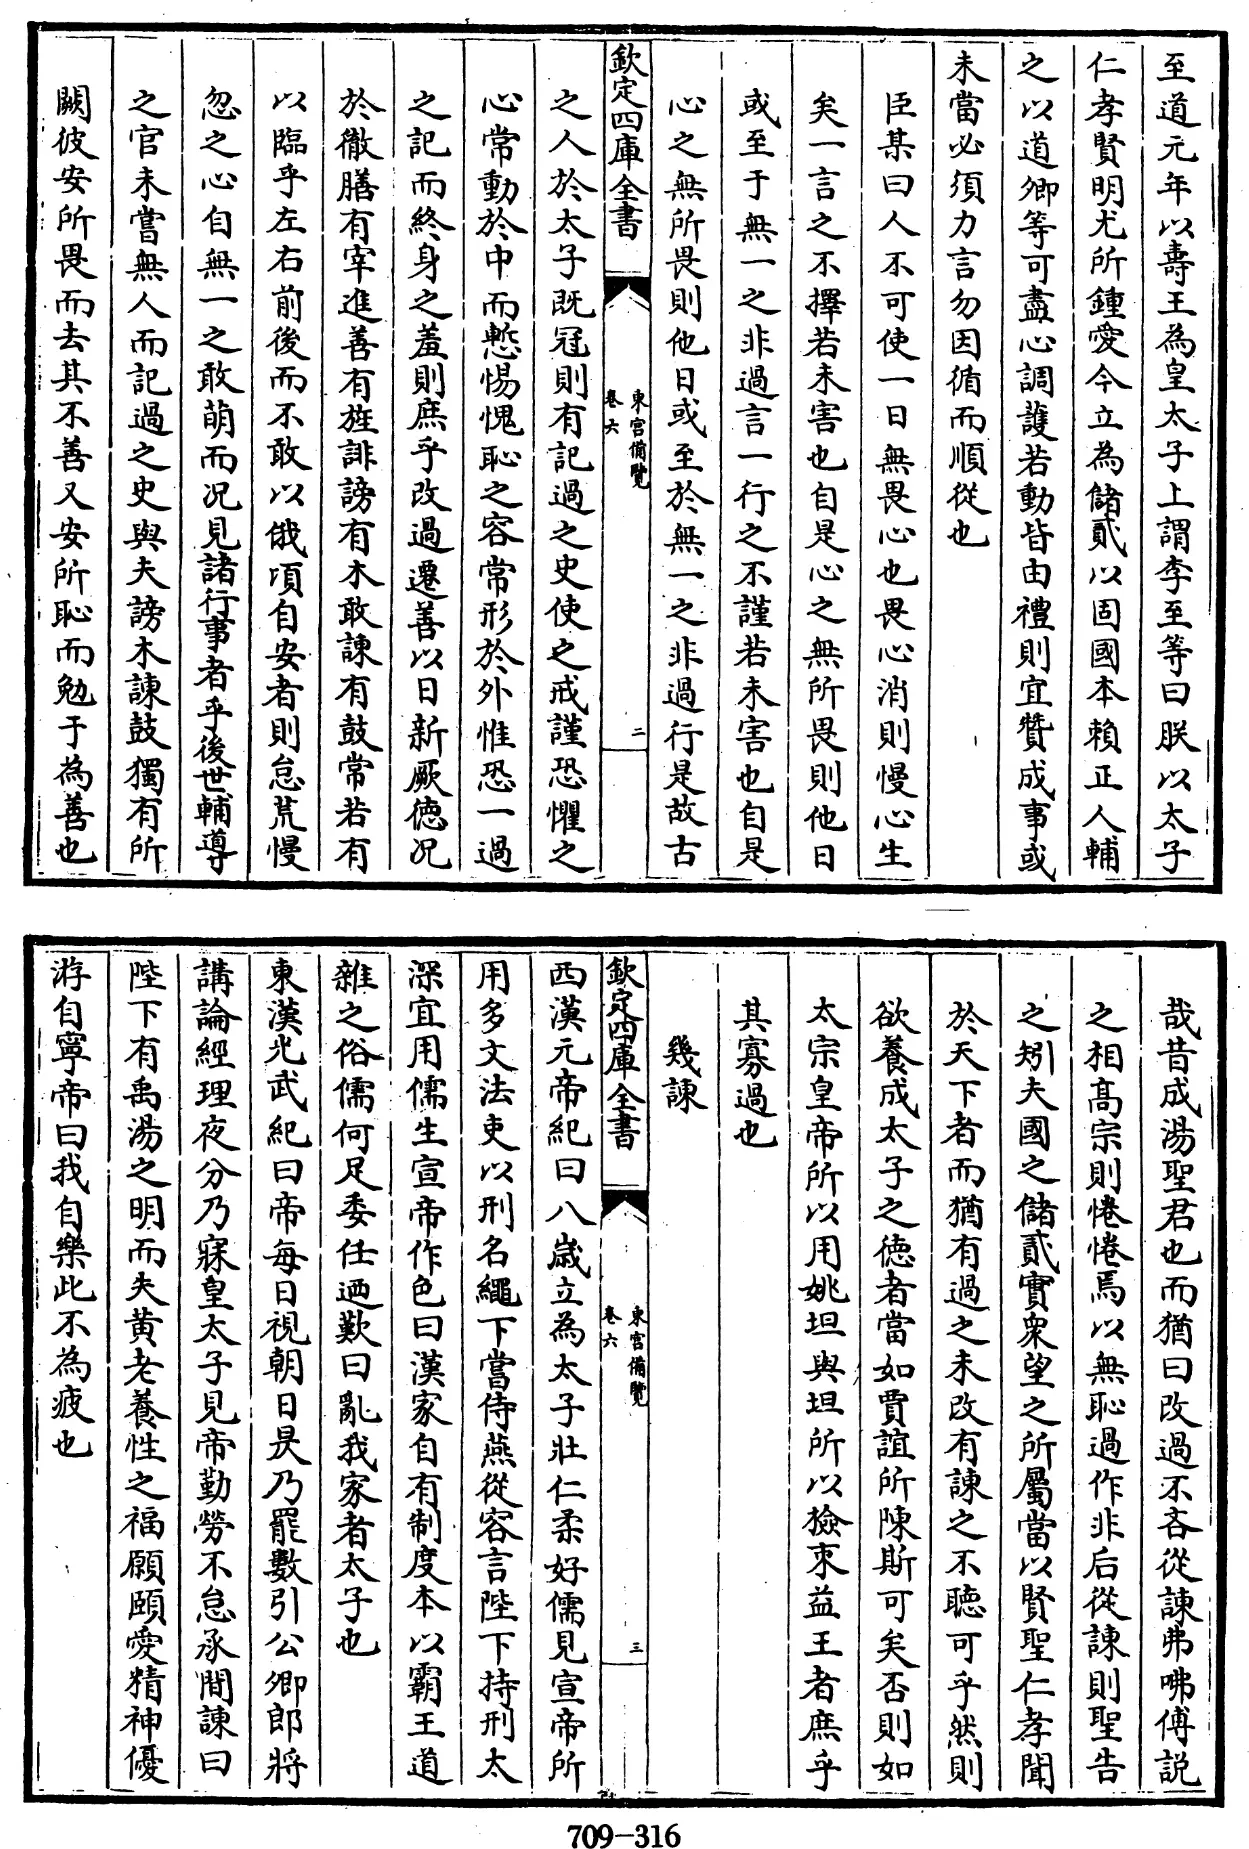 至道元年以壽王為皇太子上謂李至等曰朕以太子
仁孝賢明尤所鍾愛今立為儲貳以固國本賴正人輔
之以道卿等可盡心調護若動皆由禮則宜贊成事或
未當必須力言勿因循而順從也
臣某曰人不可使一日無畏心也畏心消則慢心生
矣一言之不擇若未害也自是心之無所畏則他日
或至于無一之非過言一行之不謹若未害也自是
心之無所畏則他日或至於無一之非過行是故古
欽定四庫全書
東宮備覽
卷六
二
之人於太子既冠則有記過之史使之戒謹恐懼之
心常動於中而慙惕愧恥之容常形於外惟恐一過
之記而終身之羞則庶乎改過遷善以日新厥德况
於徹膳有宰進善有旌誹謗有木敢諫有鼓常若有
以臨乎左右前後而不敢以俄頃自安者則怠荒慢
忽之心自無一之敢萌而况見諸行事者乎後世輔導
之官未嘗無人而記過之史與夫謗木諫鼓獨有所
闕彼安所畏而去其不善又安所恥而勉于為善也
哉昔成湯聖君也而猶曰改過不吝從諫弗咈傅説
之相高宗則惓惓焉以無恥過作非后從諫則聖告
之矧夫國之儲貳實衆望之所屬當以賢聖仁孝聞
於天下者而猶有過之未改有諫之不聽可乎然則
欲養成太子之德者當如賈誼所陳斯可矣否則如
太宗皇帝所以用姚坦與坦所以檢束益王者庶乎
其寡過也
幾諫
欽定四庫全書
東宮備覽
卷六
三
西漢元帝紀曰八歲立為太子壯仁柔好儒見宣帝所
用多文法吏以刑名繩下嘗侍燕從容言陛下持刑太
深宜用儒生宣帝作色曰漢家自有制度本以霸王道
雜之俗儒何足委任迺歎曰亂我家者太子也
東漢光武紀曰帝每日視朝日昃乃罷數引公卿郎將
講論經理夜分乃寐皇太子見帝勤勞不怠承間諫曰
陛下有禹湯之明而失黃老養性之福願頤愛精神優
游自寧帝曰我自樂此不為疲也
709-316